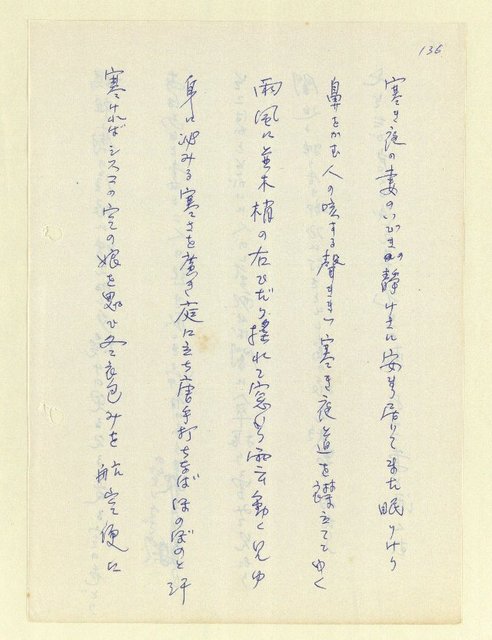 136
寒き夜の妻のいびきの静けさに安う居りてまた眠りけり
鼻をかむ人の咳する聲きき寒き夜道を襟立ててゆく
雨風に並木梢の右ひだり揺れて窓から雨雲動く見ゆ
身に沁みる寒さを薄き庭に立ち唐手打ちなばほのぼのと汗
寒ければシスコの空の娘を思ひ冬衣包みを航空便に